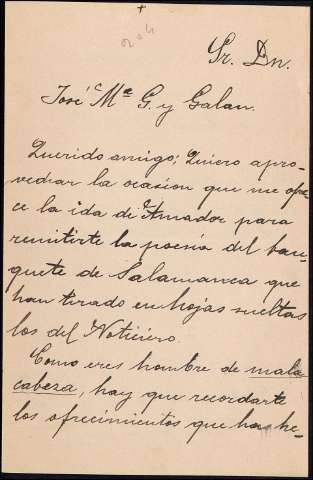 204
Sr. Dn.
José Mª G. y Galan.
Querido amigo: Quiero apro-
vechar la ocasion que me ofre-
ce la ida de Amador para
remitirte la poesia del ban-
quete de Salamanca que
han tirado en hojas sueltas
los del Noticiero.
Como eres hombre de mala
cabeza, hay que recordarte
los ofrecimientos que ha he-